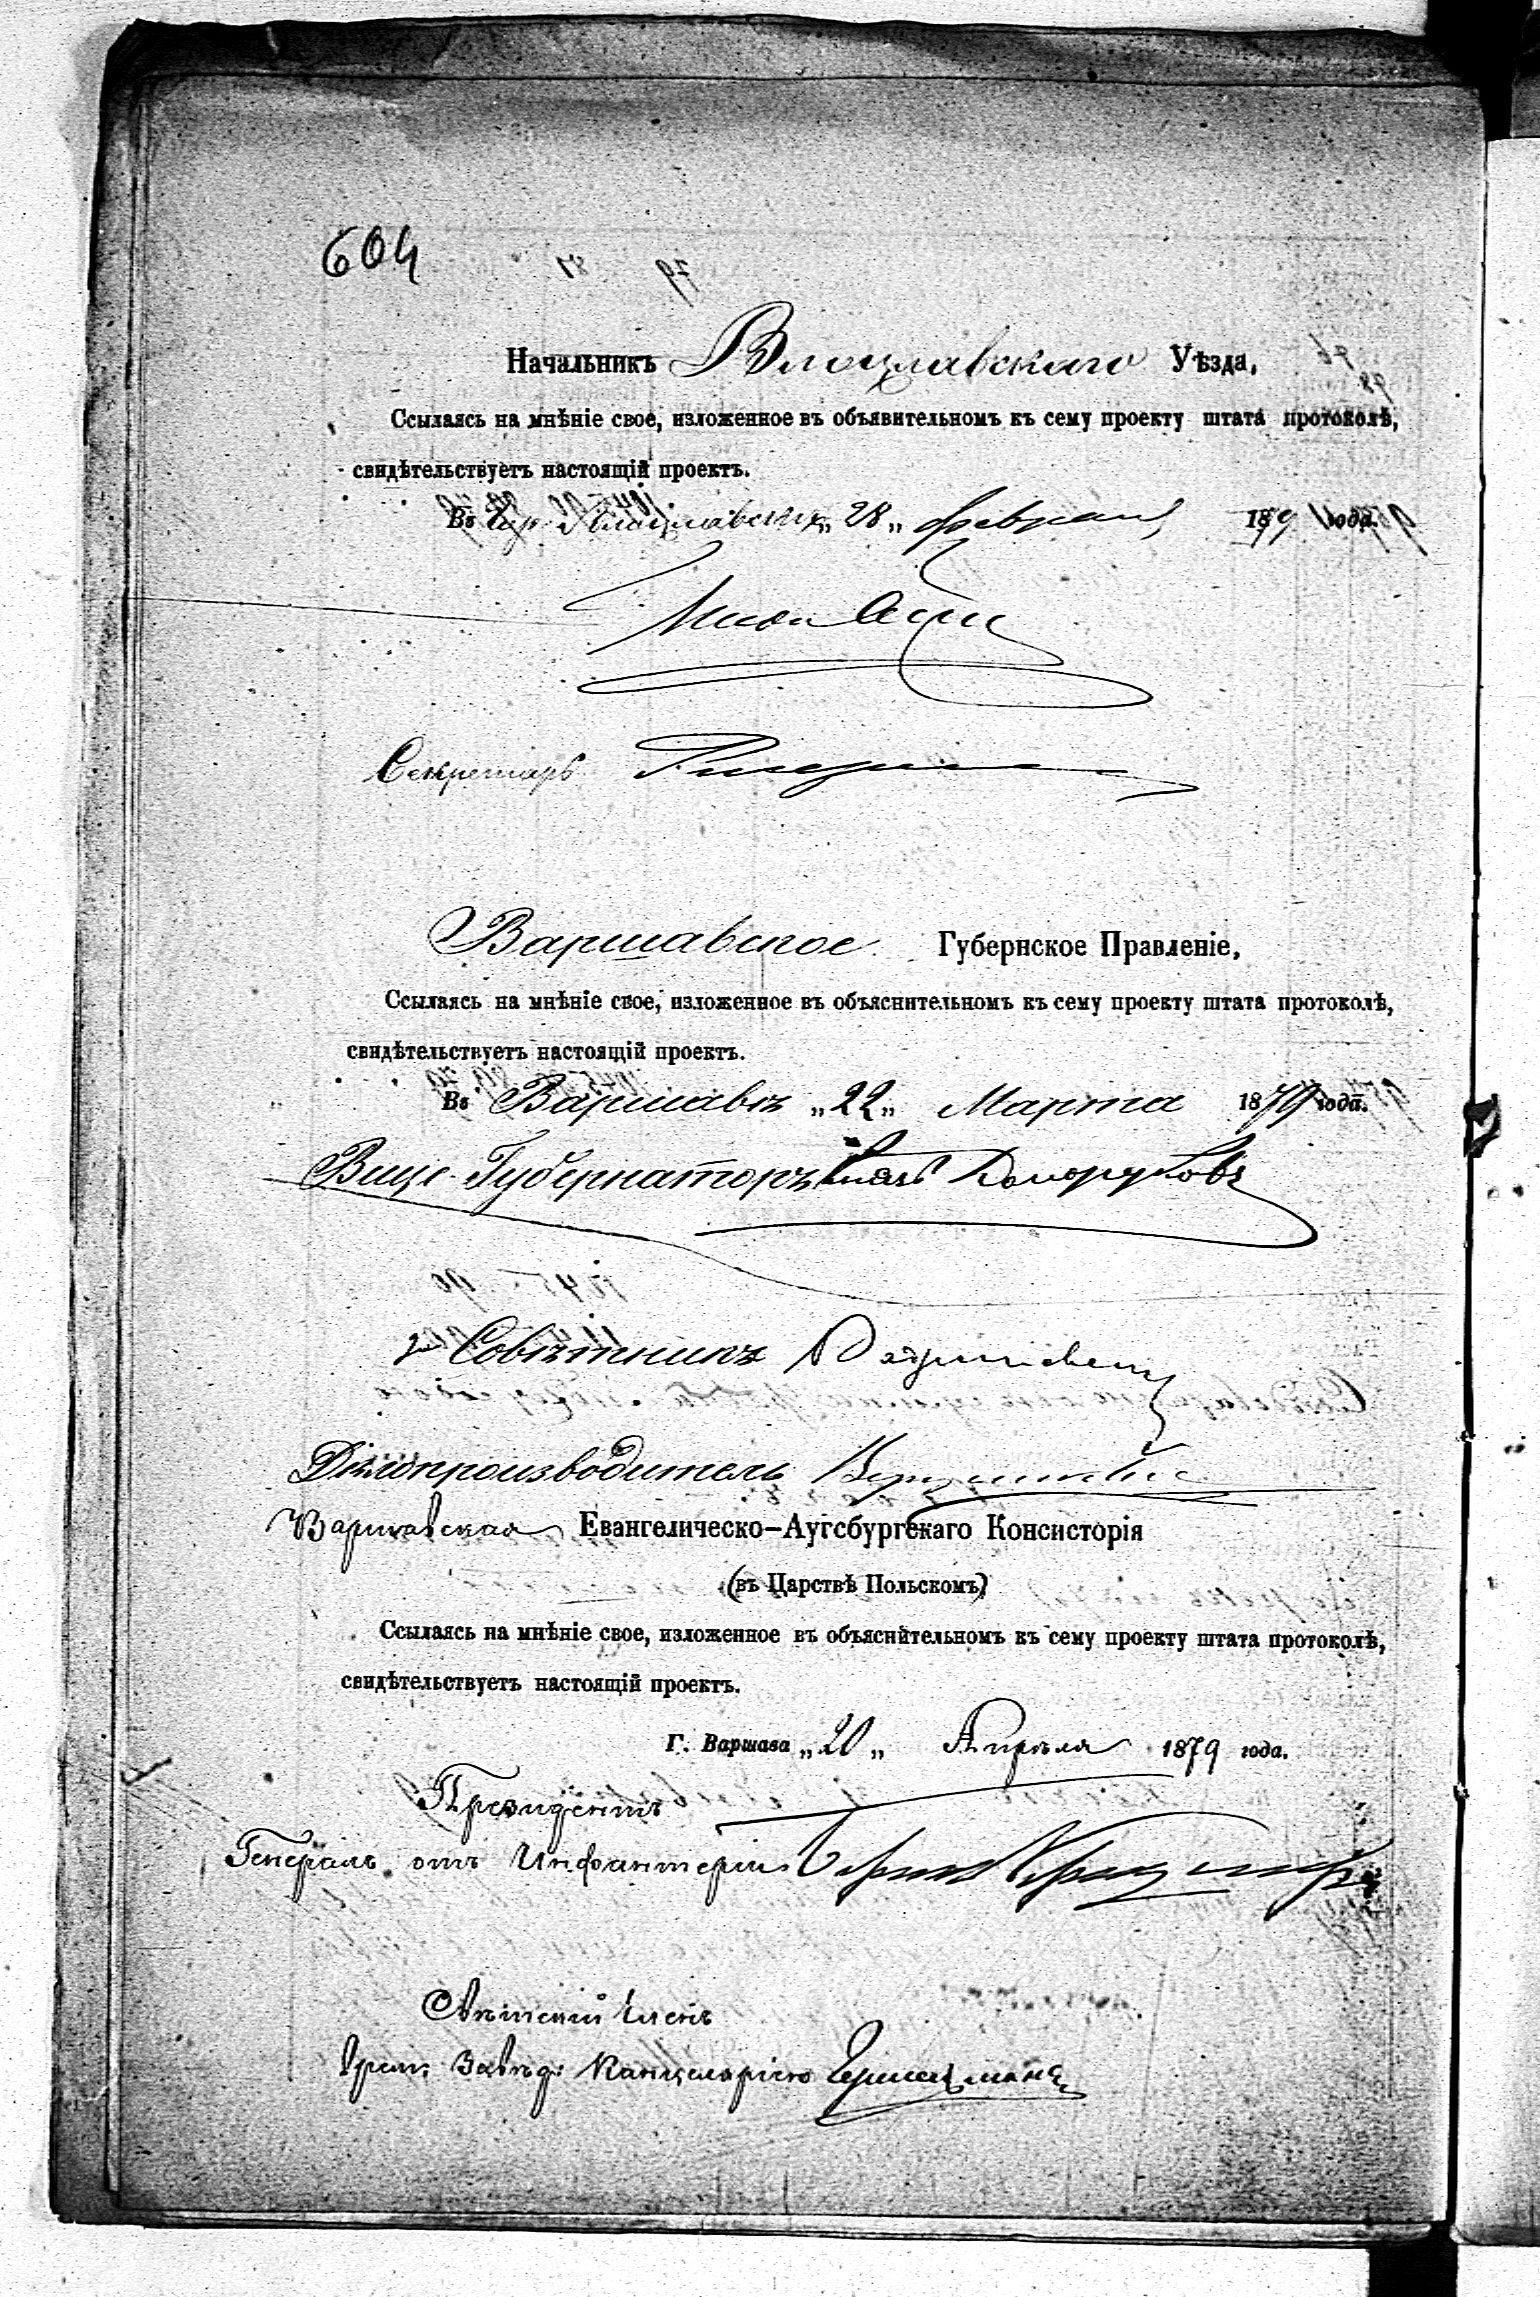 604
Начальникъ Влоцлавскаго Уѣзда,
Ссылаясь на мнѣніе свое, изложенное въ объявительномъ къ сему проекту штата протоколѣ,
свидѣтельствуетъ настоящій проектъ.
Въ гор. „28„ февраля 1879 года.
Секретарь
Варшавское Губернское Правленіе,
Ссылаясь на мнѣніе свое, изложенное въ объяснительномъ къ сему проекту штата протоколѣ,
свидѣтельствуетъ настоящій проектъ.
Въ Варшавѣ „22„ Марта 1879 года.
Вице-Губернаторъ Князь Долоруковъ
Совѣтникъ
Дѣлопроизводитель
Варшавская Евангелическо-Аугсбургскаго Консисторія
(въ Царствѣ Польскомъ)
Ссылаясь на мнѣніе свое, изложенное въ объяснительномъ къ сему проекту штата протоколѣ,
свидѣтельствуетъ настоящій проектъ.
Г. Варшава „20„ Апрѣля 1879 года.
Президентъ
Генералъ отъ Инфантеріи
Свѣтскій Членъ
Завѣд: Канцеляріею